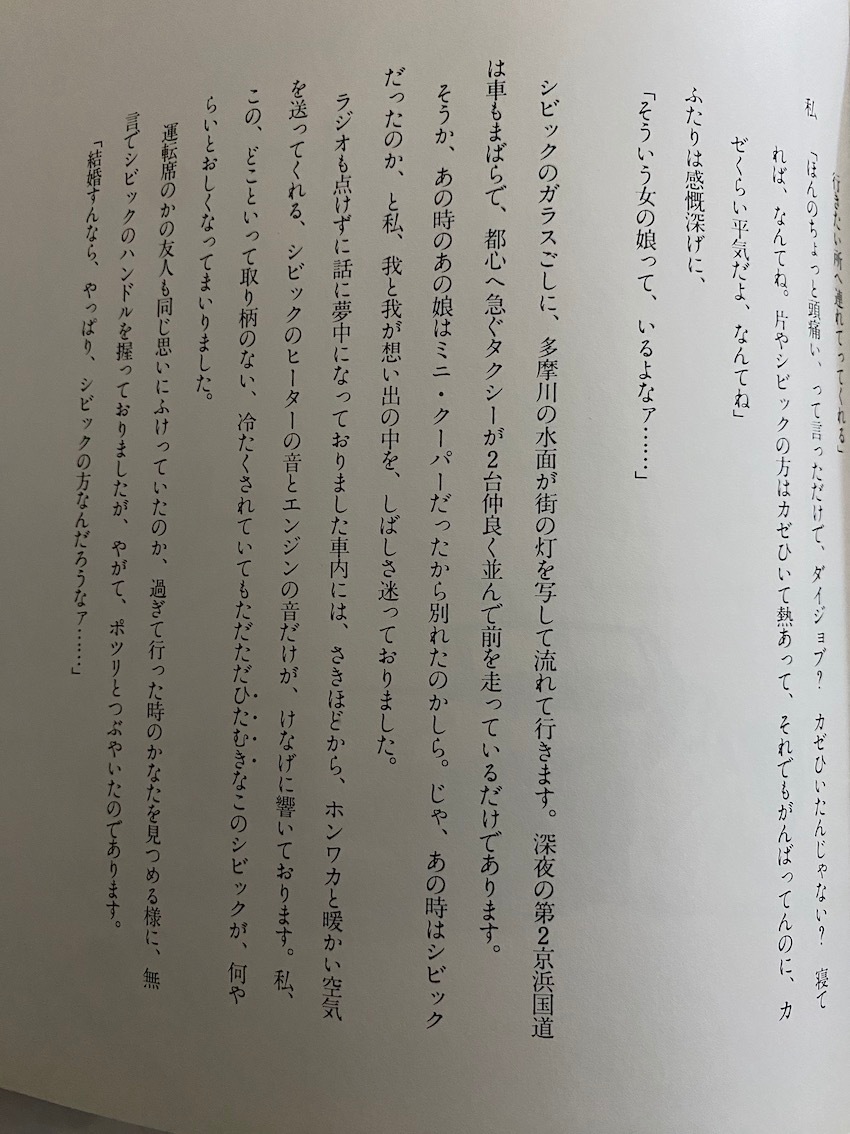 行きたい所へ連れてってくれる」
私　「ほんのちょっと頭痛い、って言っただけで、ダイジョブ？　カゼひいたんじゃない？　寝て
れば、なんてね。片やシビックの方はカゼひいて熱あって、それでもがんばってんのに、カ
ゼくらい平気だよ、なんてね」
ふたりは感慨深げに、
「そういう女の娘って、いるよなァ……」
シビックのガラスごしに、多摩川の水面が街の灯を写して流れて行きます。深夜の第２京浜国道
は車もまばらで、都心へ急ぐタクシーが２台仲良く並んで前を走っているだけであります。
そうか、あの時のあの娘はミニ・クーパーだったから別れたのかしら。じゃ、あの時はシビック
だったのか、と私、我と我が想い出の中を、しばしさ迷っておりました。
ラジオも点けずに話に夢中になっておりました車内には、さきほどから、ホンワカと暖かい空気
を送ってくれる、シビックのヒーターの音とエンジンの音だけが、けなげに響いております。私、
この、どこといって取り柄のない、冷たくされていてもただただひたむきなこのシビックが、何や
らいとおしくなってまいりました。
運転席のかの友人も同じ思いにふけっていたのか、過ぎて行った時のかなたを見つめる様に、無
言でシビックのハンドルを握っておりましたが、やがて、ポツリとつぶやいたのであります。
「結婚すんなら、やっぱり、シビックの方なんだろうなァ……」